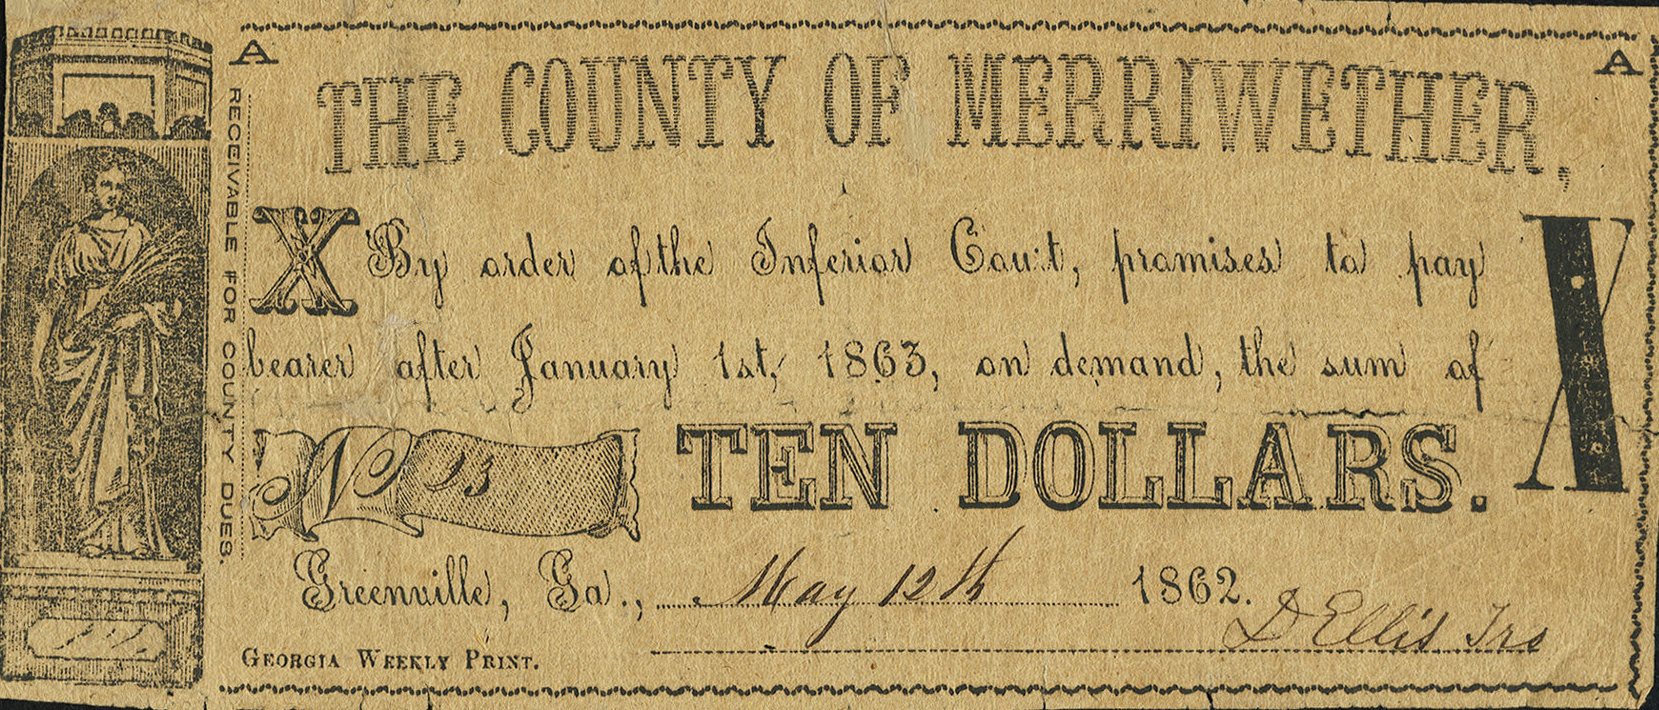 A
A
RECEIVABLE FOR COUNTY DUES.
THE COUNTY OF MERRIWETHER,
X By order of the Inferior Cou:t, promises to pay X
bearer after January 1st, 1863, on demand, the sum of
No 13 TEN DOLLARS.
Greenville, Ga., May 12th 1862.
D Ellis Trs
GEORGIA WEEKLY PRINT.